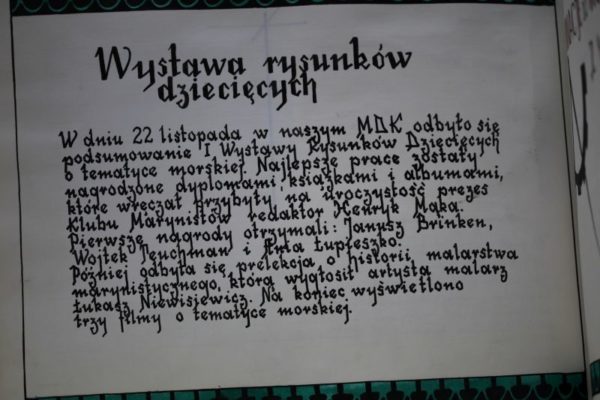 Wystawa rysunków
dziecięcych
W dniu 22 listopada w naszym MDK odbyło się
podsumowanie I Wystawy Rysunków Dziecięcych
o tematyce morskiej. Najlepsze prace zostały
nagrodzone dyplomami, książkami i albumami,
które wręczał przybyły na uroczystość prezes
Klubu Marynistów redaktor Henryk Mąka.
Pierwsze nagrody otrzymali: Janusz Brinken,
Wojtek Deuchman i Anta Łupieszko.
Później odbyła się prelekcja o historii, malarstwa
marynistycznego, którą wygłosił artysta malarz
Łukasz Niewisiewicz. Na koniec wyświetlono
trzy filmy o tematyce morskiej.